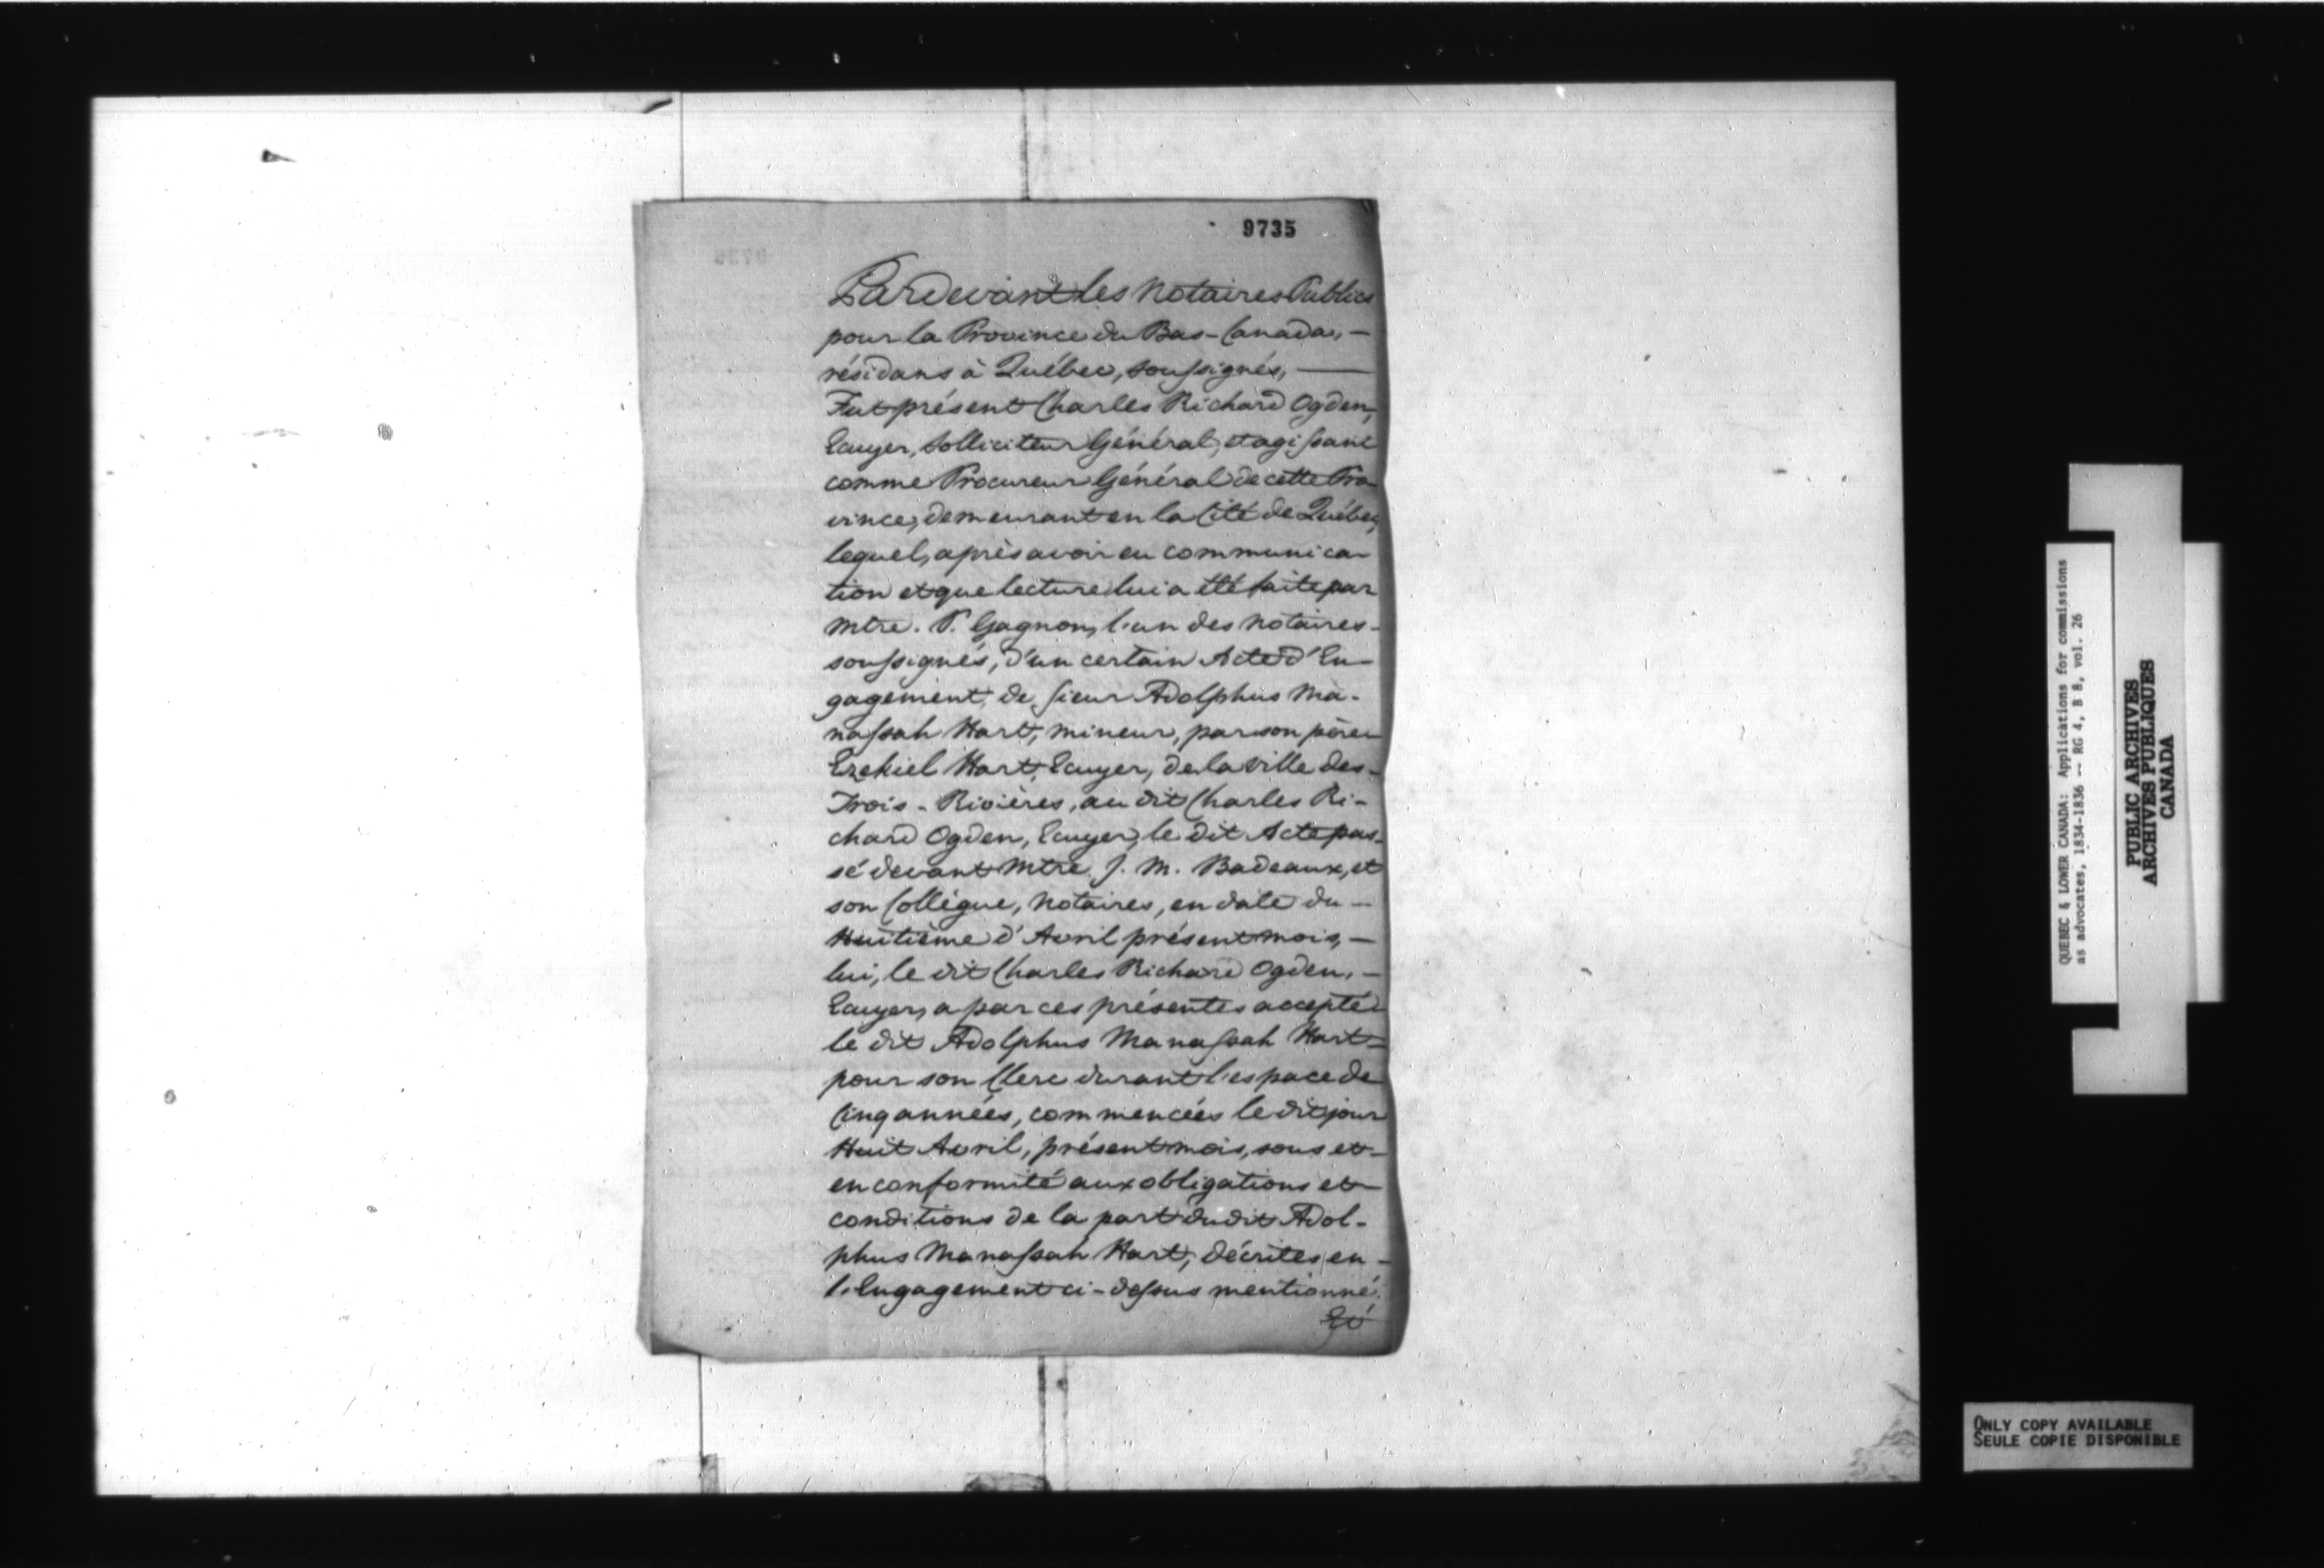 9735
Pardevant les Notaires Publics
pour la Province du Bas-Canada, —
résidans à Québec, soussignés, —
Fut présent Charles Richard Ogden,
Ecuyer, Solliciteur Général, et agissant
comme Procureur Général de cette Pro-
vince, demeurant en la Cité de Québec,
lequel, après avoir eu communica-
tion et que lecture lui a été faite par
Mtre. P. Gagnon, l'un des Notaires-
soussignés, d'un certain Acte d'En-
gagement de Sieur Adolphus Ma-
nassah Hart, mineur, par son père
Ezekiel Hart, Ecuyer, de la Ville des-
Trois-Rivières, au dit Charles Ri-
chard Ogden, Ecuyer, le dit Acte pas-
sé devant Mtre. J. M. Badeaux, et
son Collègue, Notaires, en date du —
Huitième d'Avril présent mois, —
lui, le dit Charles Richard Ogden, —
Ecuyer, a par ces présentes accepté
le dit Adolphus Manassah Hart =
pour son Clerc durant l'espace de
Cinq années, commencées le dit jour
Huit Avril, présent mois, sous et —
en conformité aux obligations et
conditions de la part du dit Adol-
phus Manassah Hart, décrites en -
l'Engagement ci-dessus mentionné.
QUEBEC & LOWER CANADA: Applications for commissions
as advocates, 1834-1836 -- RG 4, B 8, vol. 26
PUBLIC ARCHIVES
ARCHIVES PUBLIQUES
CANADA
ONLY COPY AVAILABLE
SEULE COPIE DISPONIBLE